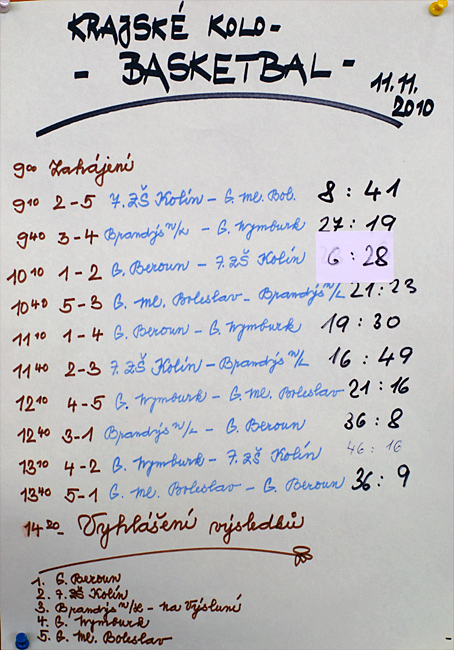 KRAJSKÉ KOLO -
- BASKETBAL -
11.11.
2010
9⁰⁰ Zahájení
9¹⁰ 2-5 7.ZŠ Kolín - G. Ml. Bol. 8 : 41
9⁴⁰ 3-4 Brandýs n/L - G. Nymburk 27 : 19
10¹⁰ 1-2 G. Beroun - 7.ZŠ Kolín 6 : 28
10⁴⁰ 5-3 G. Ml. Boleslav - Brandýs n/L 21 : 23
11¹⁰ 1-4 G. Beroun - G. Nymburk 19 : 30
11⁴⁰ 2-3 7.ZŠ Kolín - Brandýs n/L 16 : 49
12¹⁰ 4-5 G. Nymburk - G. Ml. Boleslav 21 : 16
12⁴⁰ 3-1 Brandýs n/L - G. Beroun 36 : 8
13¹⁰ 4-2 G. Nymburk - 7.ZŠ Kolín 46 : 16
13⁴⁰ 5-1 G. Ml. Boleslav - G. Beroun 36 : 9
14²⁰ - Vyhlášení výsledků
1. G. Beroun
2. 7.ZŠ Kolín
3. Brandýs n/L - Na Výsluní
4. G. Nymburk
5. G. Ml. Boleslav